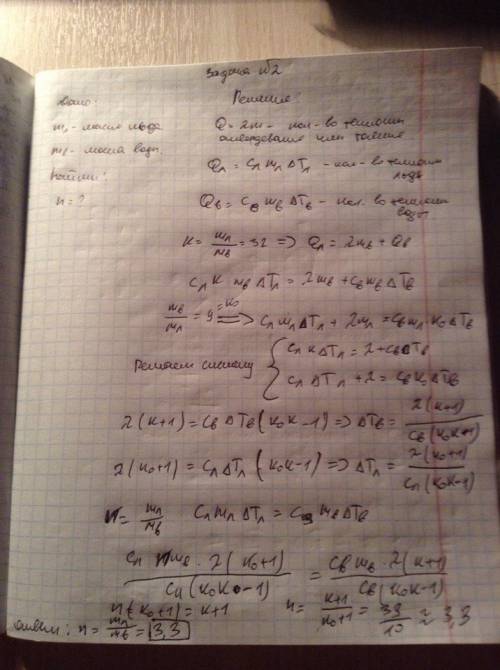 Задача №2
Дано:
Решение:
mл - масса льда
mв - масса воды.
Найти:
n = ?
Q = 2m - кол-во теплоты
отвердевания или таяния
Qл = cл mл ΔTл - кол-во теплоты
льда
Qв = cв mв ΔTв - кол. во теплоты
воды
K = mл/mв = 32 => Qл = 2mв + Qв
cл K mв ΔTл = 2mв + cв mв ΔTв
mв/mл = 9 = K0 => cл mл ΔTл + 2mл = cв mл K0 ΔTв
Решаем систему { cл K ΔTл = 2 + cв ΔTв
cл ΔTл + 2 = cв K0 ΔTв
2(K+1) = cв ΔTв (K0K-1) => ΔTв = 2(K+1)/cв(K0K-1)
2(K0+1) = cл ΔTл (K0K-1) => ΔTл = 2(K0+1)/cл(K0K-1)
n = mл/mв cл mл ΔTл = cв mв ΔTв
cл n mв · 2(K0+1)/cл(K0K-1) = cв mв · 2(K+1)/cв(K0K-1)
n(K0+1) = K+1 n = K+1/K0+1 = 33/10 ≈ 3,3
Ответ: n = mл/mв = 3,3